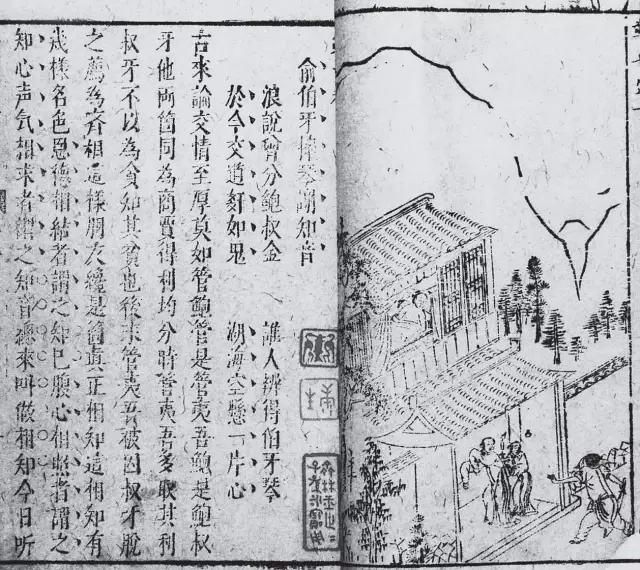 俞伯牙摔琴謝知音
浪說曾分鮑叔金　誰人辨得伯牙琴
於今交道奸如鬼　湖海空懸一片心
古來論交情至厚莫如管鮑管是管夷吾鮑是鮑叔
牙他兩箇同為商賈得利均分時管夷吾多取其利
叔牙不以為貪知其貧也後來管夷吾被囚叔牙脫
之薦為齊相這樣朋友纔是箇真正相知這相知有
幾樣名色恩德相結者謂之知己腹心相照者謂之
知心声气相求者謂之知音總來叫做相知今日聽